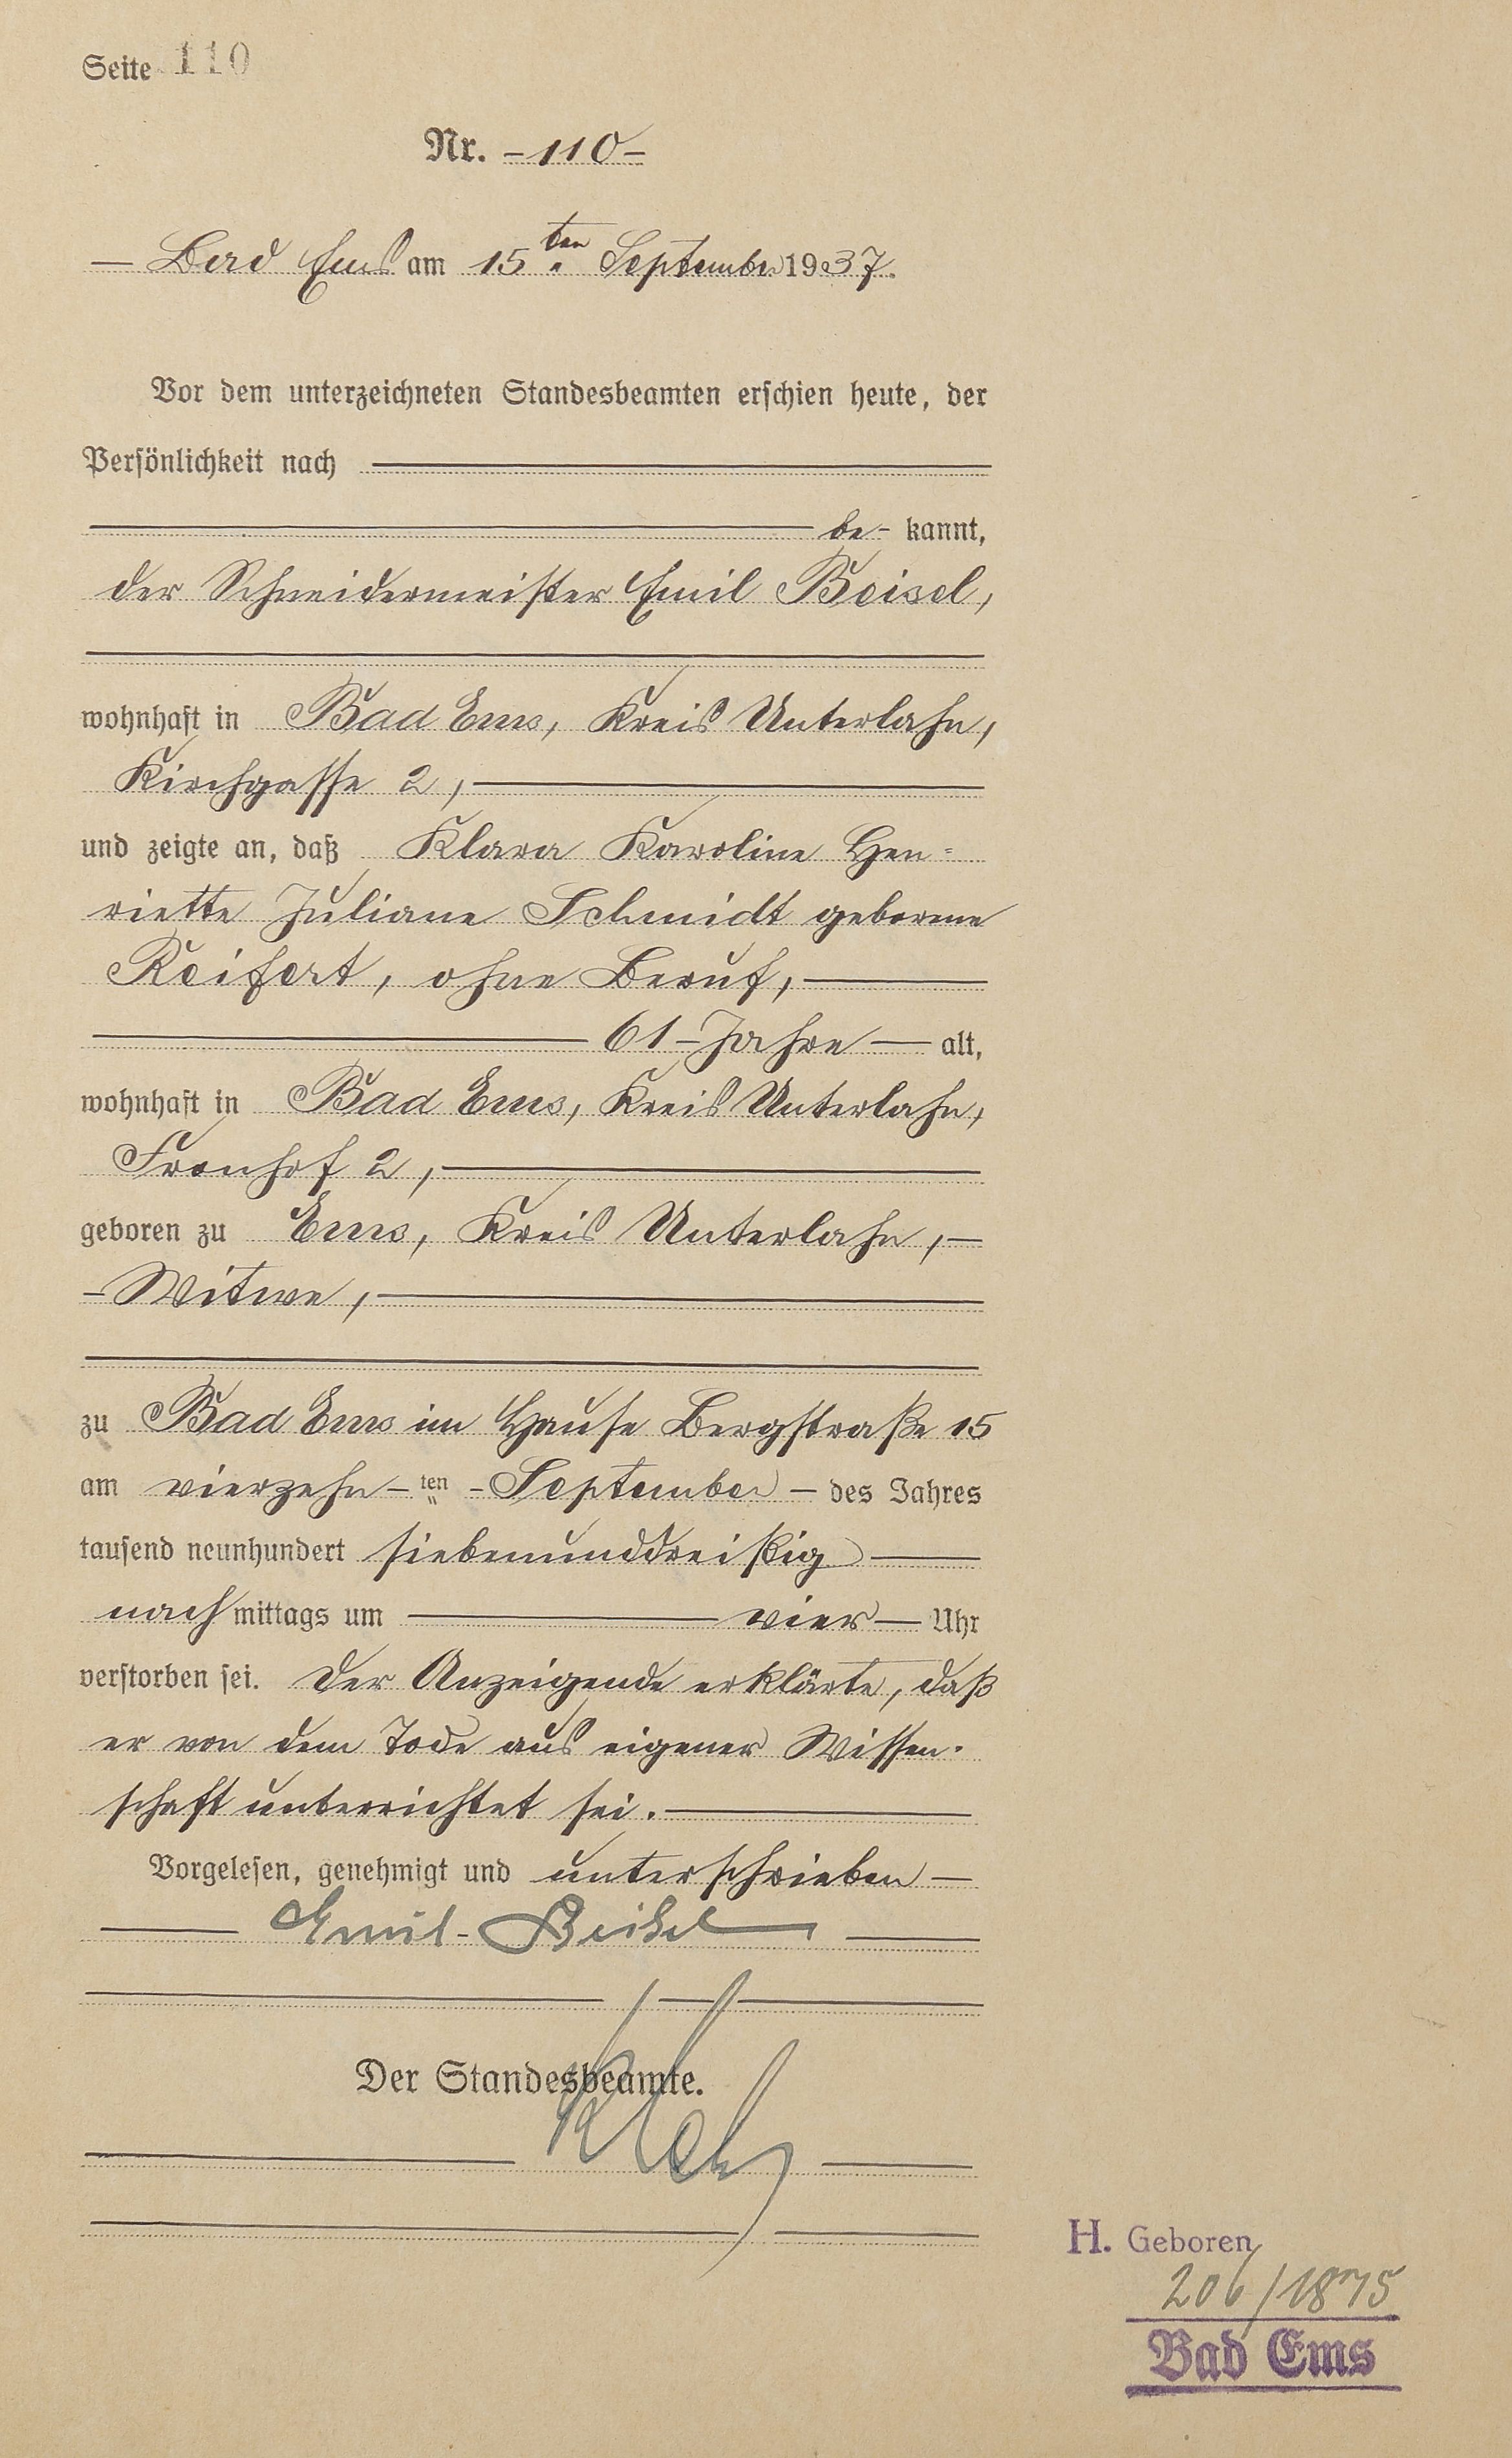 Seite 110
Nr. -110-
— Bad Ems am 15ten September 1937.
Vor dem unterzeichneten Standesbeamten erschien heute, der
Persönlichkeit nach
be- kannt,
der Schneidermeister Emil Beisel,
wohnhaft in Bad Ems, Kreis Unterlahn,
Kirchgasse 2,
und zeigte an, daß Klara Karoline Hen-
riette Juliane Schmidt geborene
Reifert, ohne Beruf,
61 Jahre — alt,
wohnhaft in Bad Ems, Kreis Unterlahn,
Fronhof 2,
geboren zu Ems, Kreis Unterlahn,
- Witwe,
zu Bad Ems im Hause Bergstraße 15
am vierzehn-ten - September - des Jahres
tausend neunhundert siebenunddreißig
nachmittags um vier Uhr
verstorben sei. Der Anzeigende erklärte, daß
er von dem Tode aus eigener Wissen-
schaft unterrichtet sei.
Vorgelesen, genehmigt und unterschrieben
Emil Beisel
Der Standesbeamte.
H. Geboren
206/1875
Bad Ems